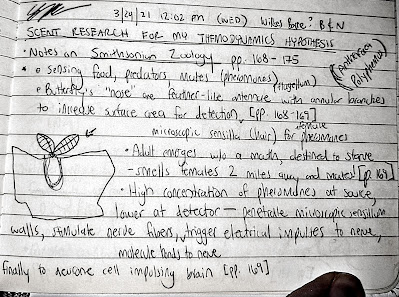 3/24/21 12:02 pm (WED) Wilkes Barre? B & N
SCENT RESEARCH FOR MY THEMODYNAMICS HYPOTHESIS
• Notes on Smithsonian Zoology pp. 168 - 175
* • Sensing food, predators, mates (pheromones) (flagellum)
(Antheraea Polyphemus)
• Butterfly's "nose" are feather-like antennae with annular branches
to increase surface area for detection. [pp. 168-169]
microscopic sensilla (hair) for female pheromones
• Adult emerges w/o a mouth, destined to starve
- smells females 2 miles away and mates! [p. 169]
• High concentration of pheromones at source,
lower at detector — penetrate microscopic sensillum
walls, stimulate nerve fibers, trigger electrical impulses to nerve,
molecule bonds to nerve
finally to neurone cell impulsing brain [pp. 169]